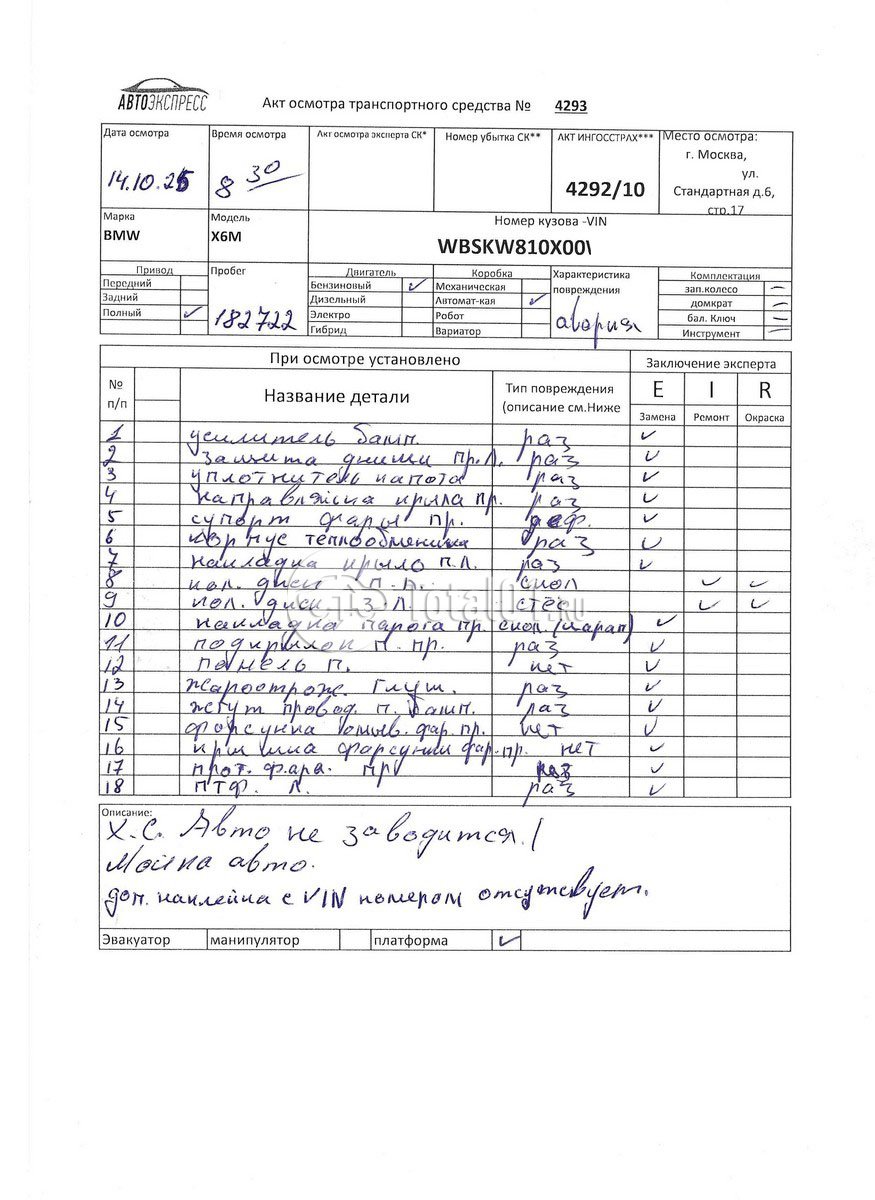 АВТОЭКСПРЕСС
Акт осмотра транспортного средства № 4293
Дата осмотра Время осмотра Акт осмотра эксперта СК* Номер убытка СК** АКТ ИНГОССТРАХ*** Место осмотра:
г. Москва,
ул.
14.10.25 8 30 4292/10 Стандартная д.6,
стр.17
Марка Модель Номер кузова -VIN
BMW X6M WBSKW810X00\
Привод Пробег Двигатель Коробка Характеристика Комплектация
Передний Бензиновый ✓ Механическая повреждения зап.колесо —
Задний Дизельный Автомат-кая ✓ домкрат —
Полный ✓ 182722 Электро Робот авария бал. Ключ —
Гибрид Вариатор Инструмент —
При осмотре установлено Заключение эксперта
№ п/п Название детали Тип повреждения (описание см.Ниже E I R
Замена Ремонт Окраска
1 усилитель бамп. раз ✓
2 защита днищи пр.Л. раз ✓
3 уплотнитель капота раз ✓
4 направляюща крыла пр. раз ✓
5 супорт фары пр. деф. ✓
6 корпус теплообменика раз ✓
7 накладка крыло п.Л. раз ✓
8 кол. диск п. Л. скол ✓ ✓
9 кол. диск З Л. стёс ✓ ✓
10 накладка парога пр. скол (царап) ✓
11 подкрылок п. пр. раз ✓
12 панель п. нет ✓
13 жароотрож. глуш. раз ✓
14 жгут провод. п. бамп. раз ✓
15 форсунка омыв. фар. пр. нет ✓
16 крышка фарсунки фар. пр. нет ✓
17 прот. фара. пр раз ✓
18 ПТФ. Л. раз ✓
Total01.ru
Описание:
Х.С. Авто не заводится./
Мойка авто.
доп. наклейка с VIN номером отсутствует.
Эвакуатор манипулятор платформа ✓